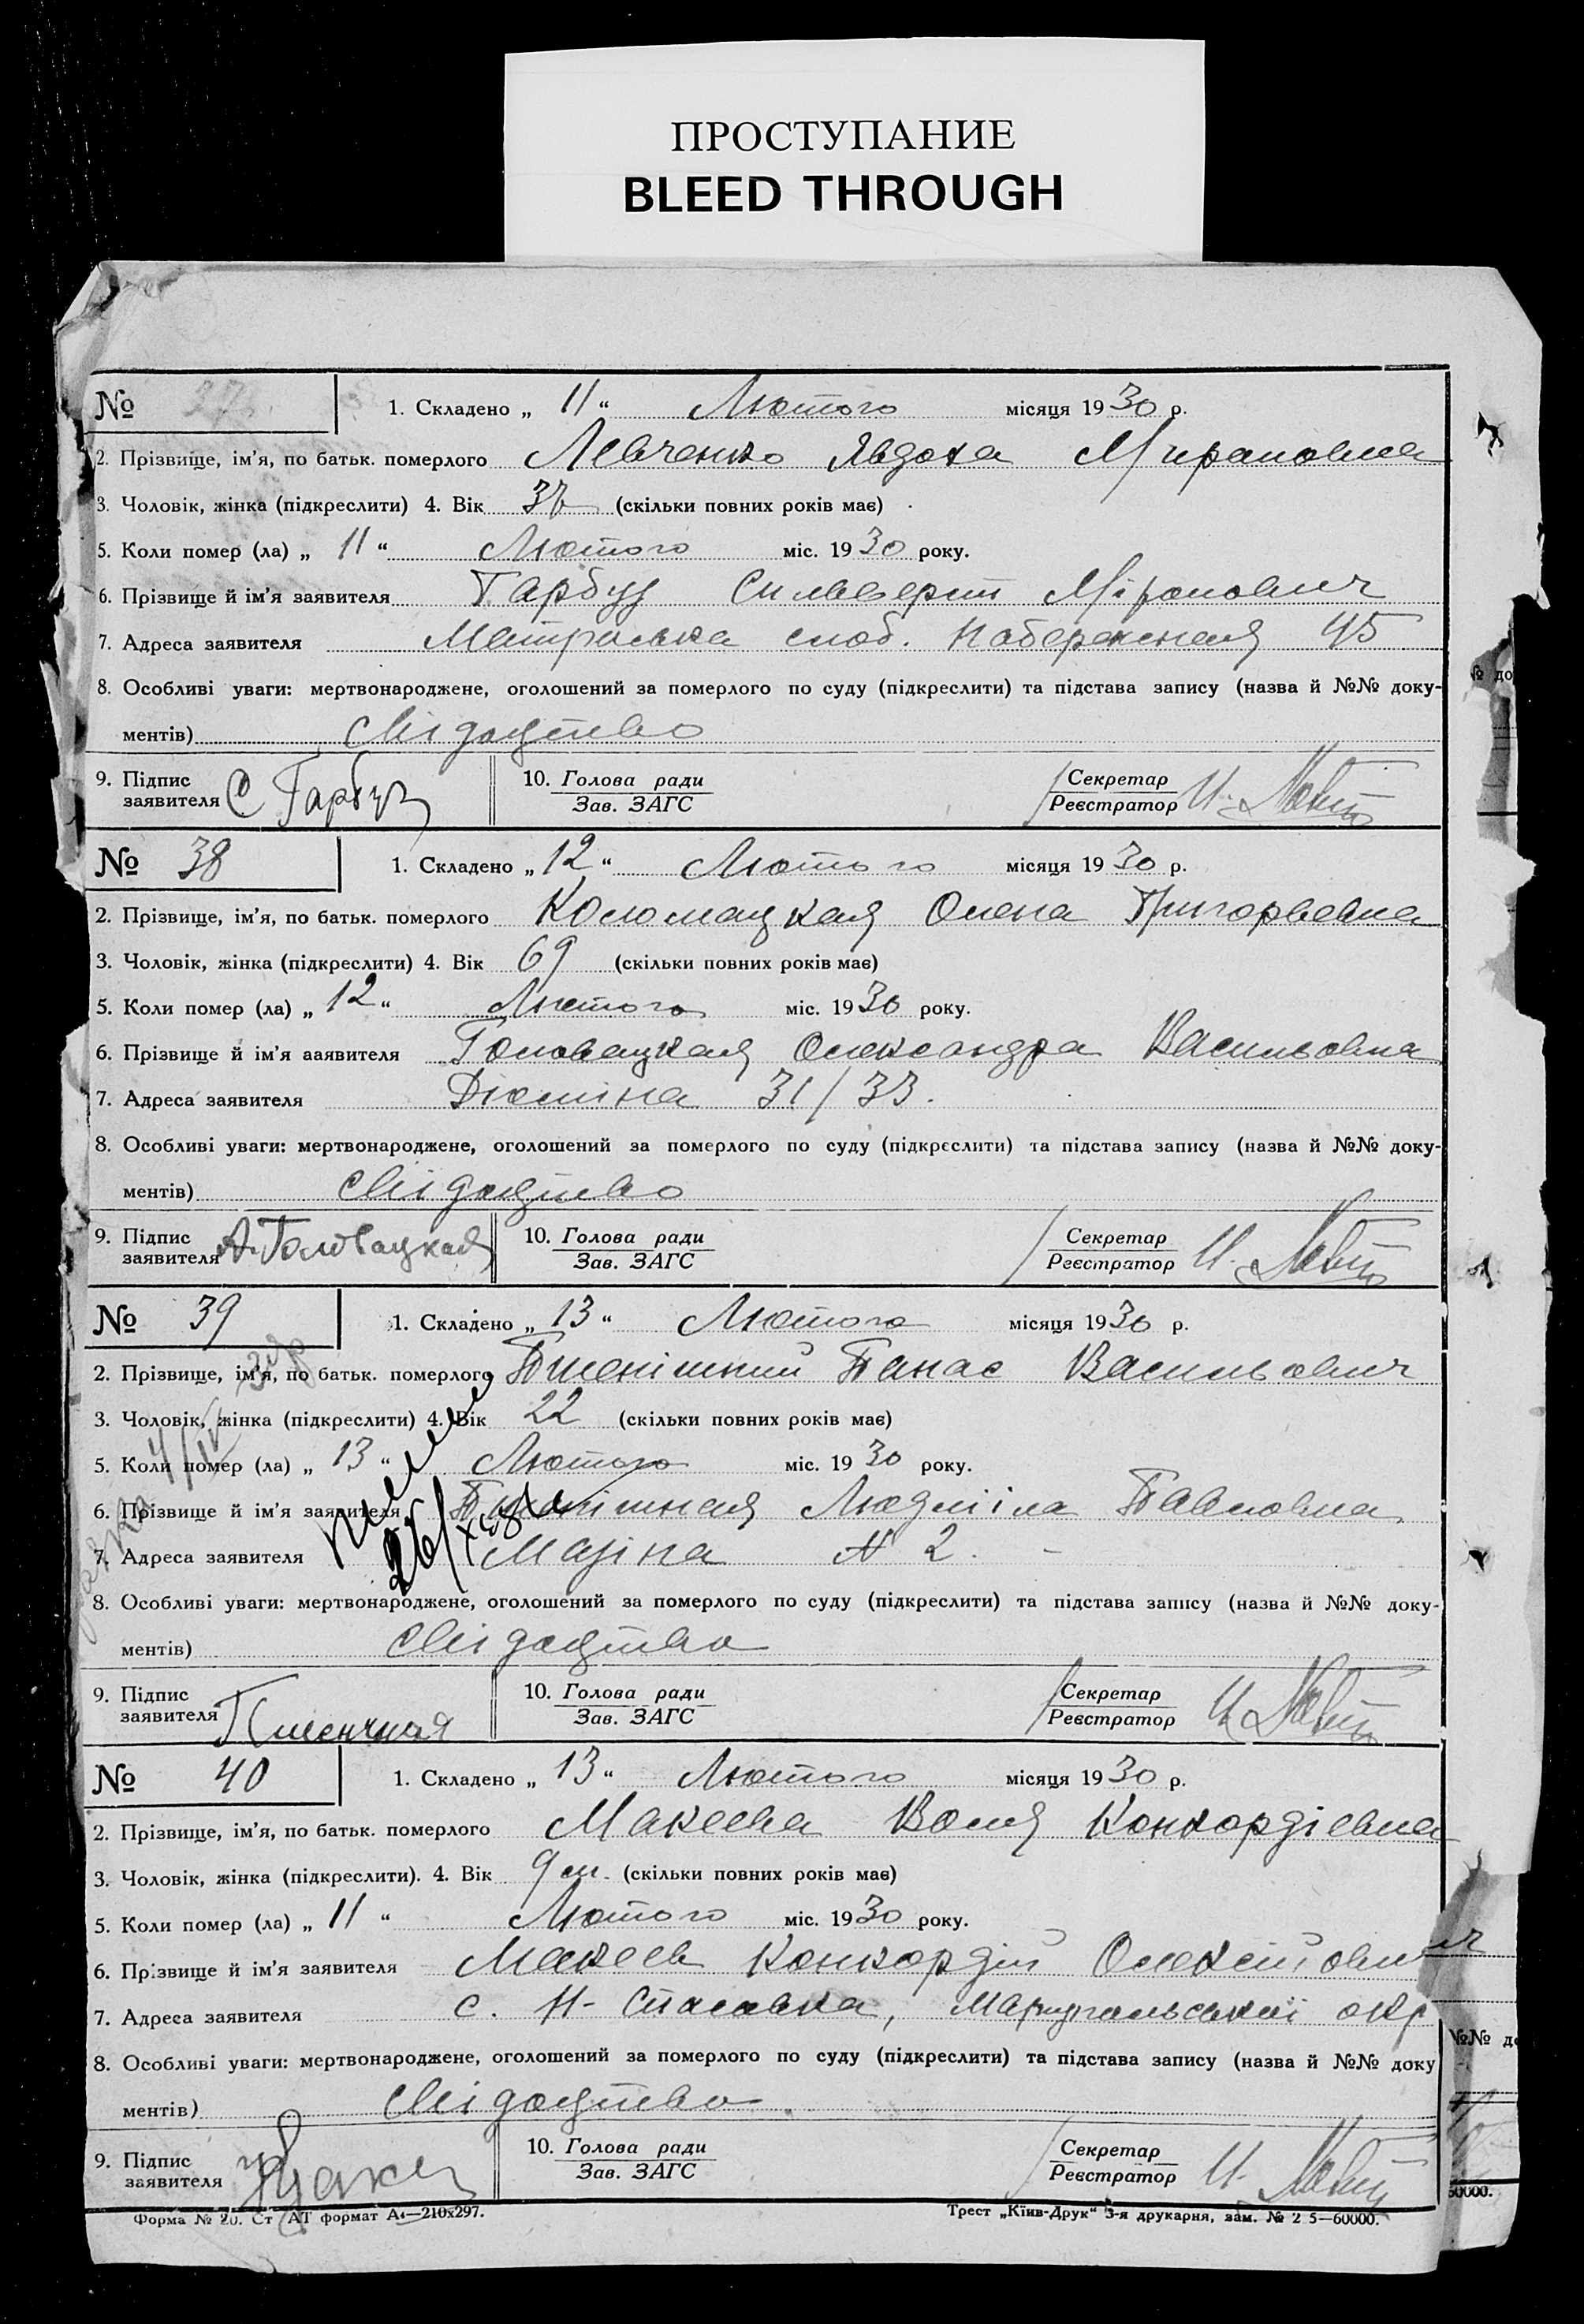 ПРОСТУПАНИЕ
BLEED THROUGH
№ 37 1. Складено „ 11 “ Лютого місяця 1930 р.
2. Прізвище, ім’я, по батьк. померлого Левченко Явдоха Мироновна
3. Чоловік, жінка (підкреслити) 4. Вік 37 (скільки повних років має)
5. Коли помер (ла) „ 11 “ Лютого міс. 1930 року.
6. Прізвище й ім’я заявителя Гарбуз Сильверст Міронович
7. Адреса заявителя слоб. Набережная 45
8. Особливі уваги: мертвонароджене, оголошений за померлого по суду (підкреслити) та підстава запису (назва й №№ доку-
ментів) свідоцтво
9. Підпис заявителя С Гарбуз 10. Голова ради Зав. ЗАГС Секретар Реєстратор
№ 38 1. Складено „ 12 “ Лютого місяця 1930 р.
2. Прізвище, ім’я, по батьк. померлого Коломацкая Олена Григорьевна
3. Чоловік, жінка (підкреслити) 4. Вік 69 (скільки повних років має)
5. Коли помер (ла) „ 12 “ Лютого міс. 1930 року.
6. Прізвище й ім’я ааявителя Головацкая Олександра Васильовна
7. Адреса заявителя Дюміна 31/33.
8. Особливі уваги: мертвонароджене, оголошений за померлого по суду (підкреслити) та підстава запису (назва й №№ доку-
ментів) свідоцтво
9. Підпис заявителя А. Головацкая 10. Голова ради Зав. ЗАГС Секретар Реєстратор
№ 39 1. Складено „ 13 “ Лютого місяця 1930 р.
2. Прізвище, ім’я, по батьк. померлого Пшенішний Панас Васильович
3. Чоловік, жінка (підкреслити) 4. Вік 22 (скільки повних років має)
5. Коли помер (ла) „ 13 “ Лютого міс. 1930 року.
6. Прізвище й ім’я заявителя Пшенішная Людміла Павловна
7. Адреса заявителя N 2.
8. Особливі уваги: мертвонароджене, оголошений за померлого по суду (підкреслити) та підстава запису (назва й №№ доку-
ментів) свідоцтво
9. Підпис заявителя Пшенична 10. Голова ради Зав. ЗАГС Секретар Реєстратор
№ 40 1. Складено „ 13 “ Лютого місяця 1930 р.
2. Прізвище, ім’я, по батьк. померлого Макеева Воля Конкордіевна
3. Чоловік, жінка (підкреслити). 4. Вік 9 м. (скільки повних років має)
5. Коли помер (ла) „ 11 “ Лютого міс. 1930 року.
6. Прізвище й ім’я заявителя Макеев Конкордій Олексійович
7. Адреса заявителя с. Н-Спасовка, Маріупільської окр
8. Особливі уваги: мертвонароджене, оголошений за померлого по суду (підкреслити) та підстава запису (назва й №№ доку
ментів) свідоцтво
9. Підпис заявителя 10. Голова ради Зав. ЗАГС Секретар Реєстратор
Форма № 20. Ст АТ формат А4—210х297. Трест „Київ-Друк“ 3-я друкарня, зам. № 2 5—60000.